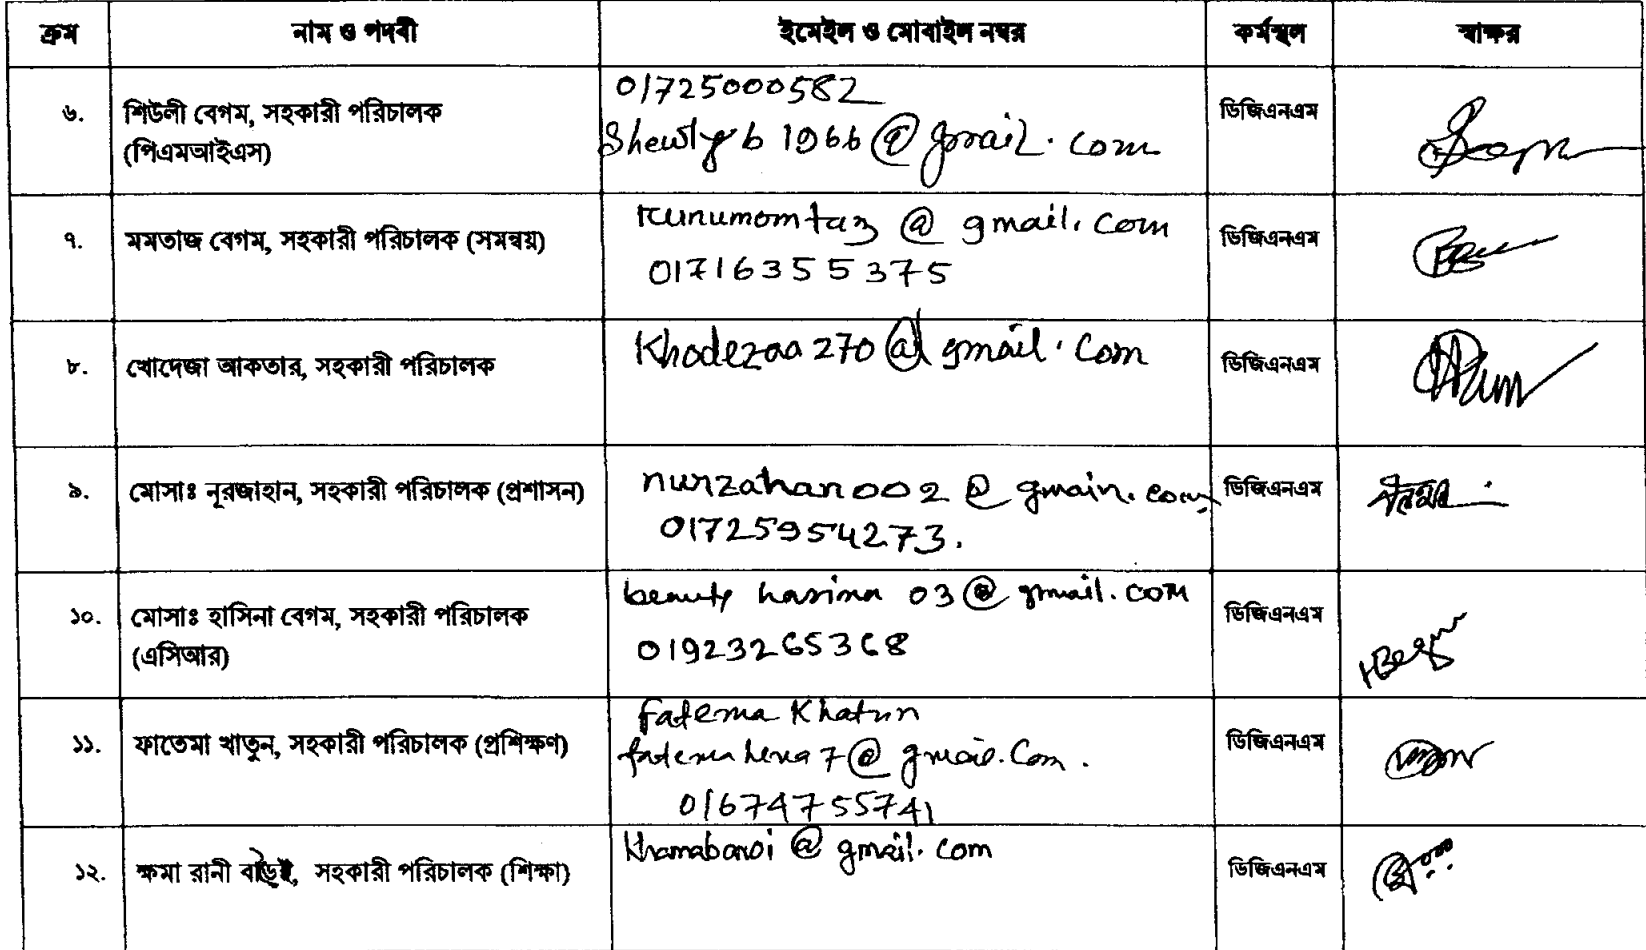 ক্রম নাম ও পদবী ইমেইল ও মোবাইল নম্বর কর্মস্থল স্বাক্ষর
৬. শিউলী বেগম, সহকারী পরিচালক (পিএমআইএস) 01725000582 ডিজিএনএম
Shewlyb1966@gmail.com
৭. মমতাজ বেগম, সহকারী পরিচালক (সমন্বয়) runumomtaz@gmail.com ডিজিএনএম
01716355375
৮. খোদেজা আকতার, সহকারী পরিচালক Khodezaa270@gmail.com ডিজিএনএম
৯. মোসাঃ নূরজাহান, সহকারী পরিচালক (প্রশাসন) nurzahan002@gmain.com ডিজিএনএম
01725954273.
১০. মোসাঃ হাসিনা বেগম, সহকারী পরিচালক (এসিআর) beauty hasina 03@gmail.com ডিজিএনএম
01923265368
১১. ফাতেমা খাতুন, সহকারী পরিচালক (প্রশিক্ষণ) Fatema Khatun ডিজিএনএম
fatema hena7@gmail.Com.
01674755741
১২. ক্ষমা রানী বাড়ৈই, সহকারী পরিচালক (শিক্ষা) Khamabaroi@gmail.com ডিজিএনএম